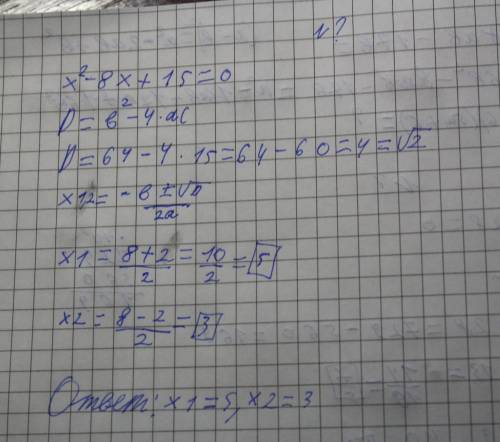 N?
x²-8x+15=0
D=b²-4·ac
D=64-4·15=64-60=4=√2
x12=-b±√D/2a
x1=8+2/2=10/2=5
x2=8-2/2=3
Ответ: x1=5, x2=3